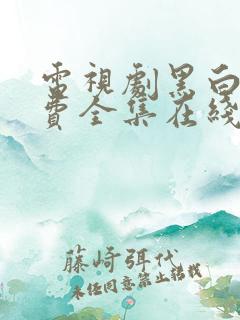 電視劇黑白
費全集在綫
藤崎弭代
未經同意禁止轉載